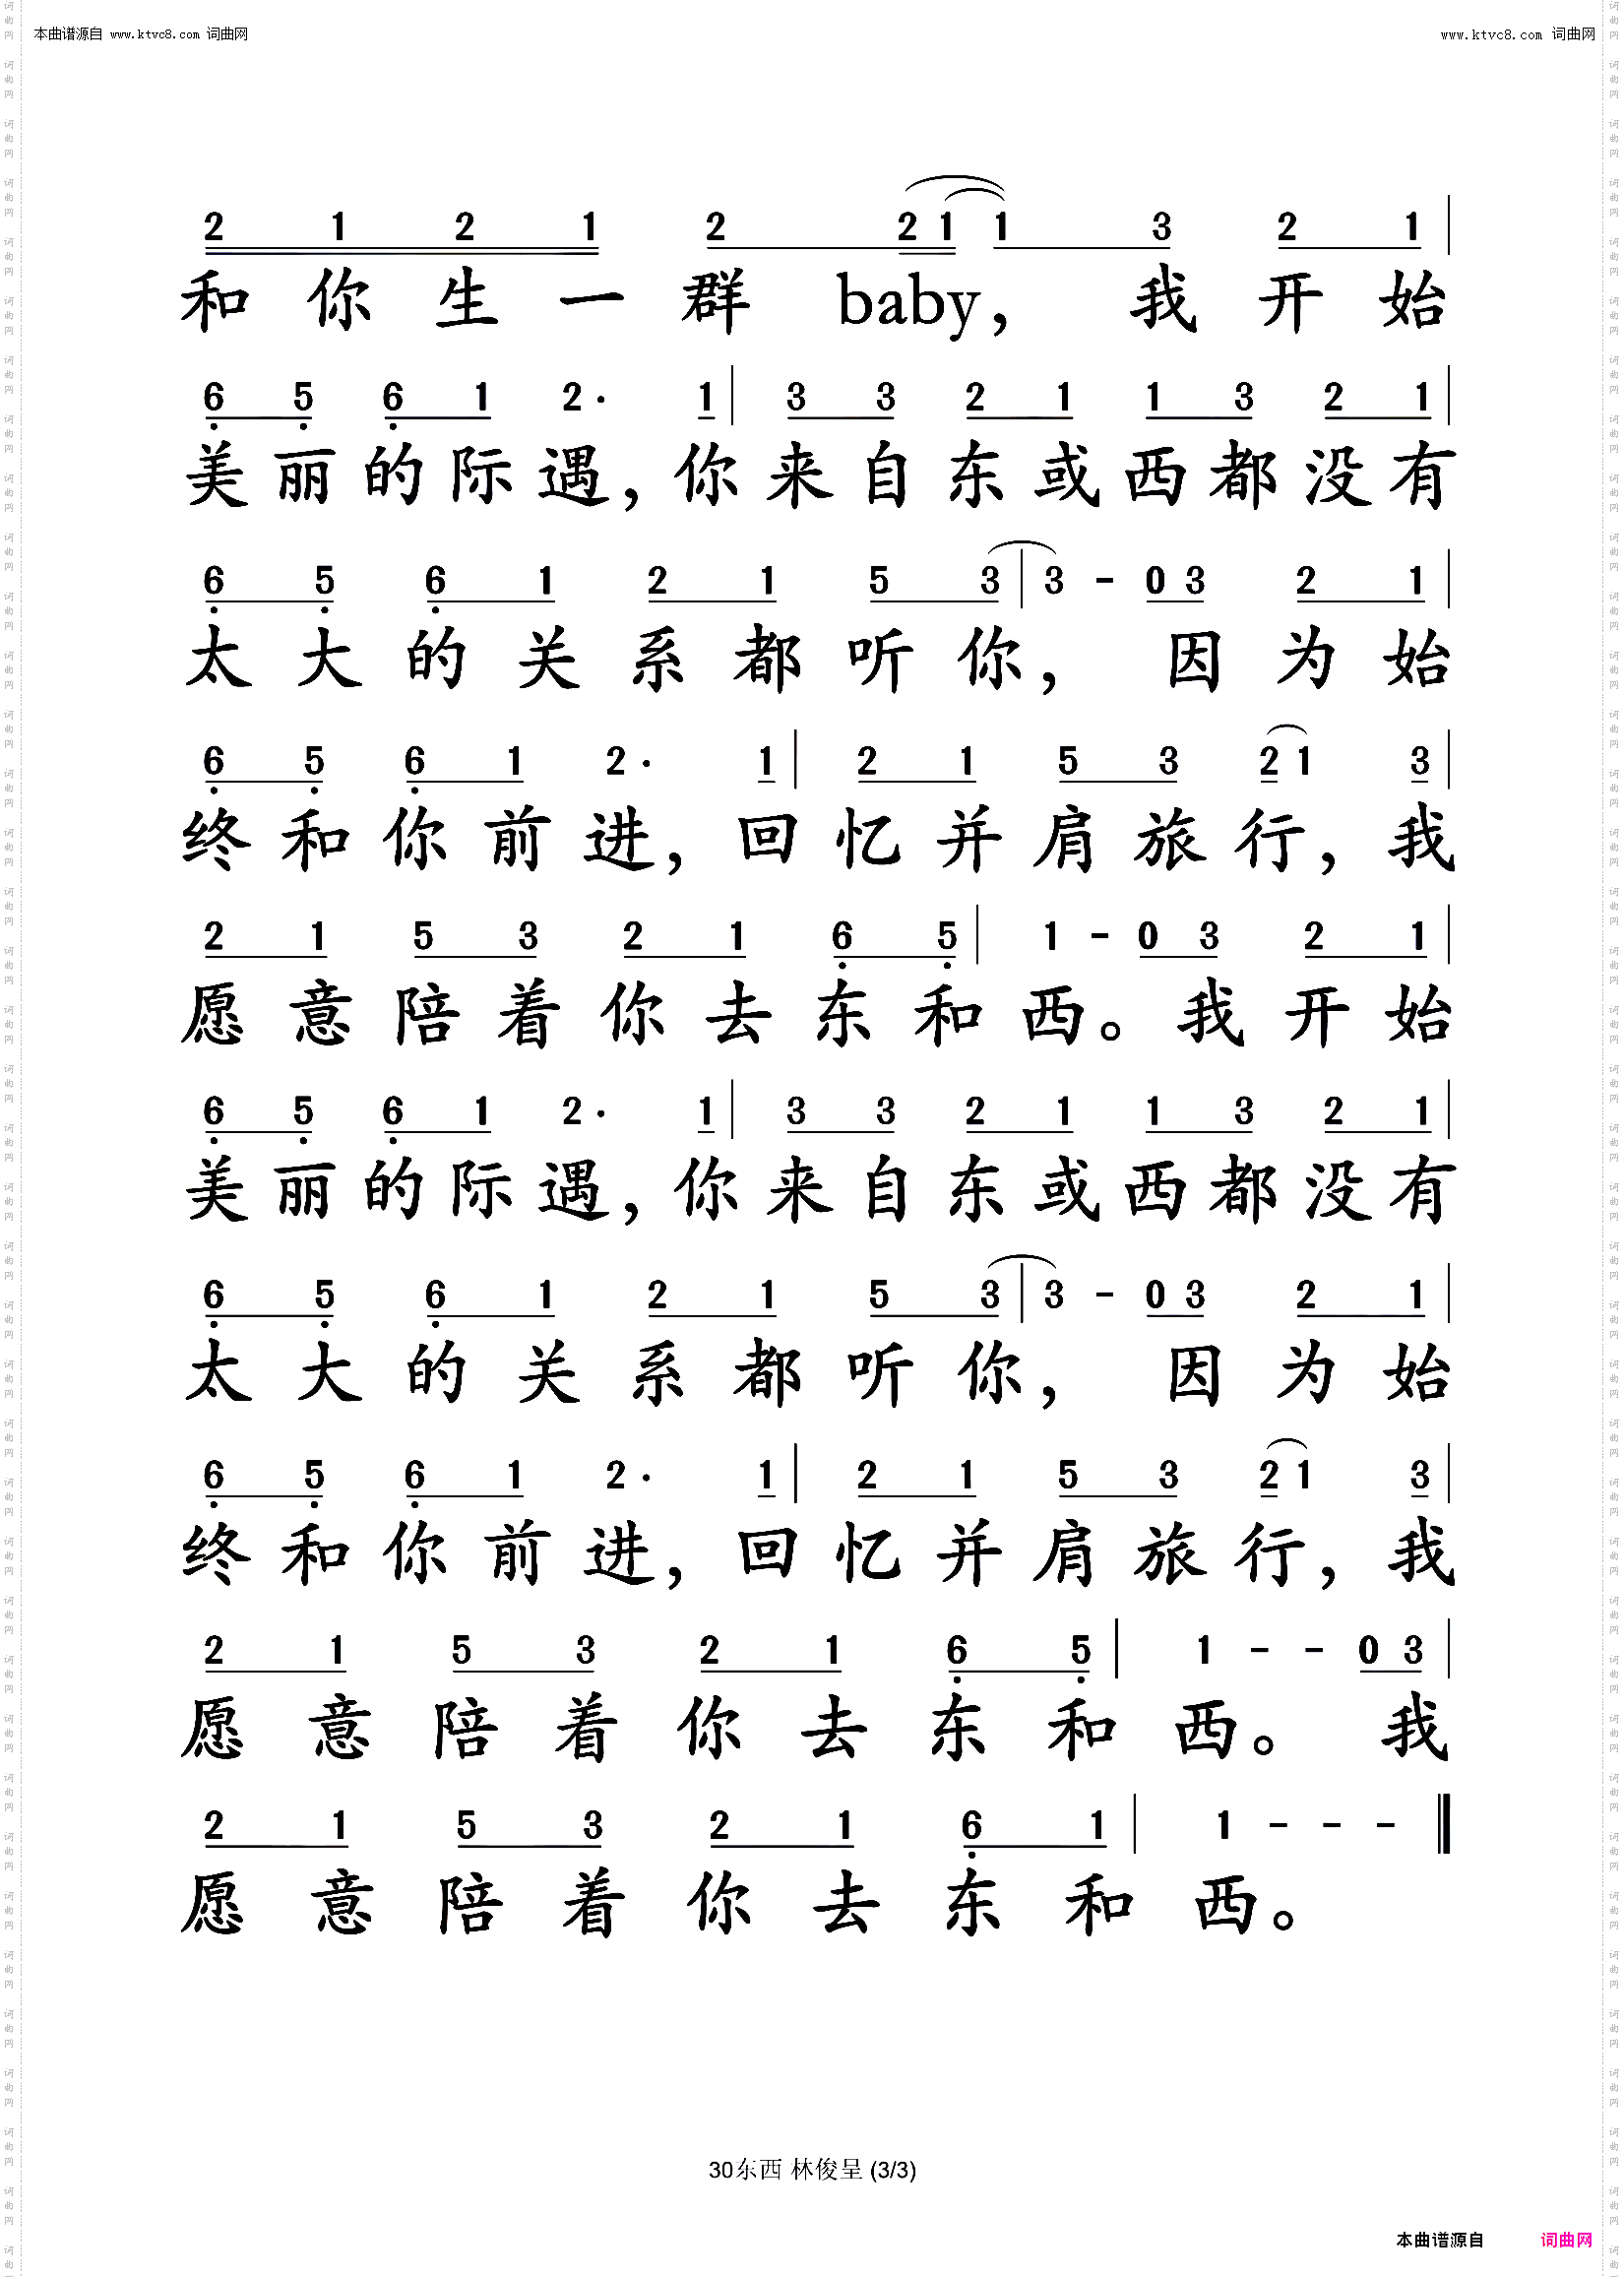 本曲谱源自 www.ktvc8.com 词曲网
www.ktvc8.com 词曲网
2 1 2 1 2 2 1 1 3 2 1
和 你 生 一 群 baby, 我 开 始
6 5 6 1 2· 1 | 3 3 2 1 1 3 2 1
美 丽 的 际 遇, 你 来 自 东 或 西 都 没 有
6 5 6 1 2 1 5 3 | 3 - 0 3 2 1
太 大 的 关 系 都 听 你, 因 为 始
6 5 6 1 2· 1 | 2 1 5 3 2 1 3
终 和 你 前 进, 回 忆 并 肩 旅 行, 我
2 1 5 3 2 1 6 5 | 1 - 0 3 2 1
愿 意 陪 着 你 去 东 和 西。 我 开 始
6 5 6 1 2· 1 | 3 3 2 1 1 3 2 1
美 丽 的 际 遇, 你 来 自 东 或 西 都 没 有
6 5 6 1 2 1 5 3 | 3 - 0 3 2 1
太 大 的 关 系 都 听 你, 因 为 始
6 5 6 1 2· 1 | 2 1 5 3 2 1 3
终 和 你 前 进, 回 忆 并 肩 旅 行, 我
2 1 5 3 2 1 6 5 | 1 - - 0 3
愿 意 陪 着 你 去 东 和 西。 我
2 1 5 3 2 1 6 1 | 1 - - -
愿 意 陪 着 你 去 东 和 西。
30东西 林俊呈 (3/3)
本曲谱源自 词曲网